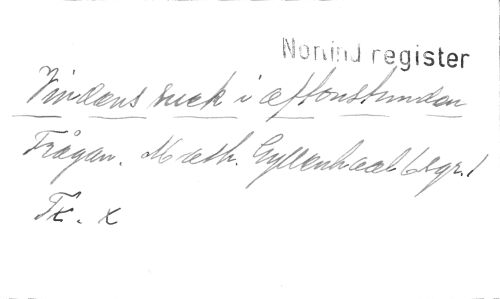 Nomind register
Vindens suck i aftonstunden
Frågan. Math. Gyllenhaal (sgr.)
Tr. x